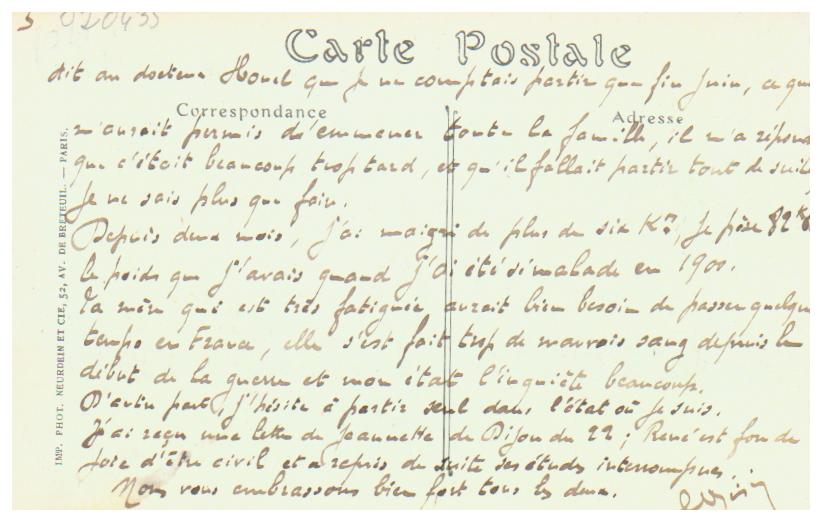 5 020433
Carte Postale
dit au docteur Horel que je ne comptais partir que fin juin, ce qui
Correspondance
Adresse
m'aurait permis d'emmener toute la famille, il m'a répondu
que c'était beaucoup trop tard, et qu'il fallait partir tout de suite
Je ne sais plus que faire.
Depuis deux mois, j'ai maigri de plus de six K°, je pèse 82 K
le poids que j'avais quand j'ai été si malade en 1900.
Ta mère qui est très fatiguée aurait bien besoin de passer quelque
temps en France, elle s'est fait trop de mauvais sang depuis le
début de la guerre et mon état l'inquiète beaucoup.
D'autre part, j'hésite à partir seul dans l'état où je suis.
J'ai reçu une lettre de Jeannette de Dijon du 22 ; René est fou de
joie d'être civil et a repris de suite ses études interrompues.
Nous vous embrassons bien fort tous les deux.
IMP. PHOT. NEURDEIN ET CIE, 52, AV. DE BRETEUIL. — PARIS.